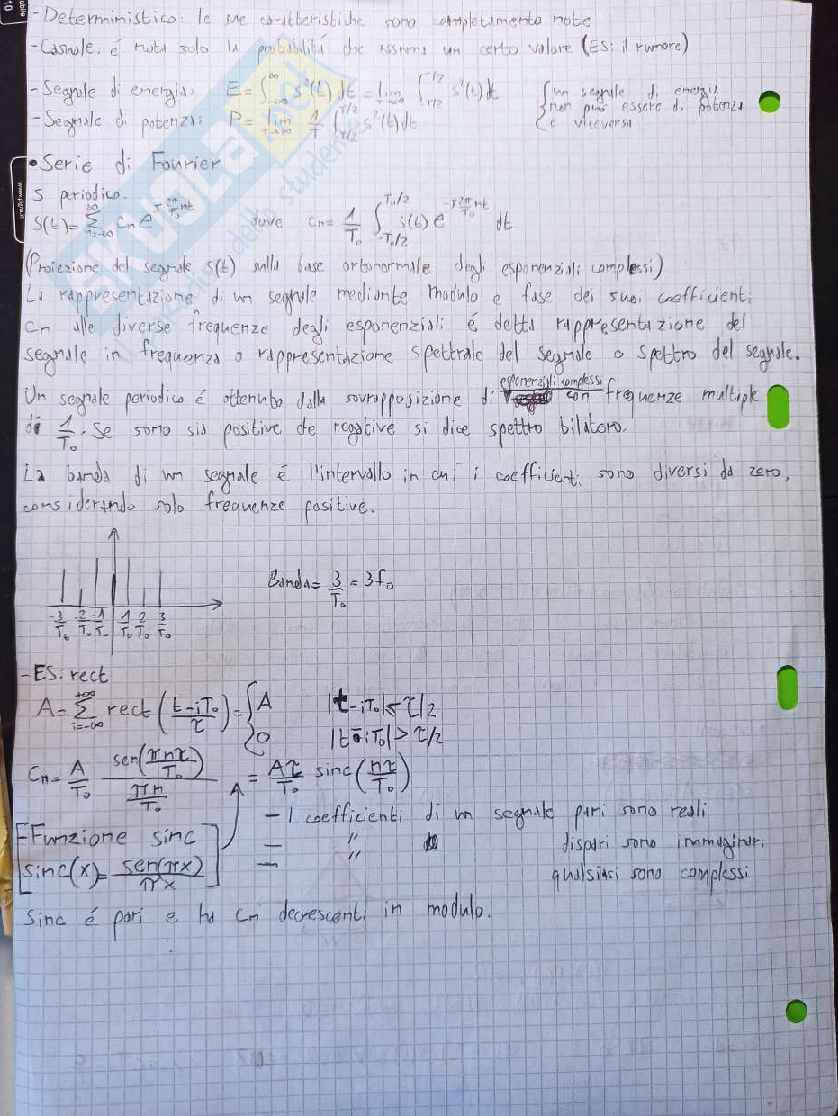 -Deterministico: le sue caratteristiche sono completamente note
-Casuale: é nota solo la probabilità che assuma un certo valore (ES: il rumore)
-Segnale di energia: E = ∫_{-∞}^{∞} s²(t) dt = lim_{T→∞} ∫_{-T/2}^{T/2} s²(t) dt { un segnale di energia
-Segnale di potenza: P = lim_{T→∞} 1/T ∫_{-T/2}^{T/2} s²(t) dt non può essere di potenza
e viceversa
• Serie di Fourier
s periodico.
s(t) = Σ_{n=-∞}^{∞} cn e^{j 2π/T₀ nt} dove cn = 1/T₀ ∫_{-T₀/2}^{T₀/2} s(t) e^{-j 2π/T₀ nt} dt
(Proiezione del segnale s(t) sulla base ortonormale degli esponenziali complessi)
La rappresentazione di un segnale mediante modulo e fase dei suoi coefficienti
cn alle diverse frequenze degli esponenziali é detta rappresentazione del
segnale in frequenza o rappresentazione spettrale del segnale o spettro del segnale.
Un segnale periodico é ottenuto dalla sovrapposizione di esponenziali complessi con frequenze multiple
di 1/T₀. Se sono sia positive che negative si dice spettro bilatero.
La banda di un segnale é l'intervallo in cui i coefficienti sono diversi da zero,
considerando solo frequenze positive.
Banda = 3/T₀ = 3f₀
-3/T₀ -2/T₀ -1/T₀ 1/T₀ 2/T₀ 3/T₀
-ES: rect
A - Σ_{i=-∞}^{+∞} rect((t-iT₀)/τ) = { A |t-iT₀| < τ/2
0 |t-iT₀| > τ/2
Cn = A/T₀ sen(πnτ/T₀) / (πn/T₀) = Aτ/T₀ sinc(nτ/T₀)
- I coefficienti di un segnale pari sono reali
[-Funzione sinc - " dispari sono immaginari
sinc(x) = sen(πx)/πx] - " qualsiasi sono complessi
Sinc é pari e ha cn decrescenti in modulo.
SKUOLA.net